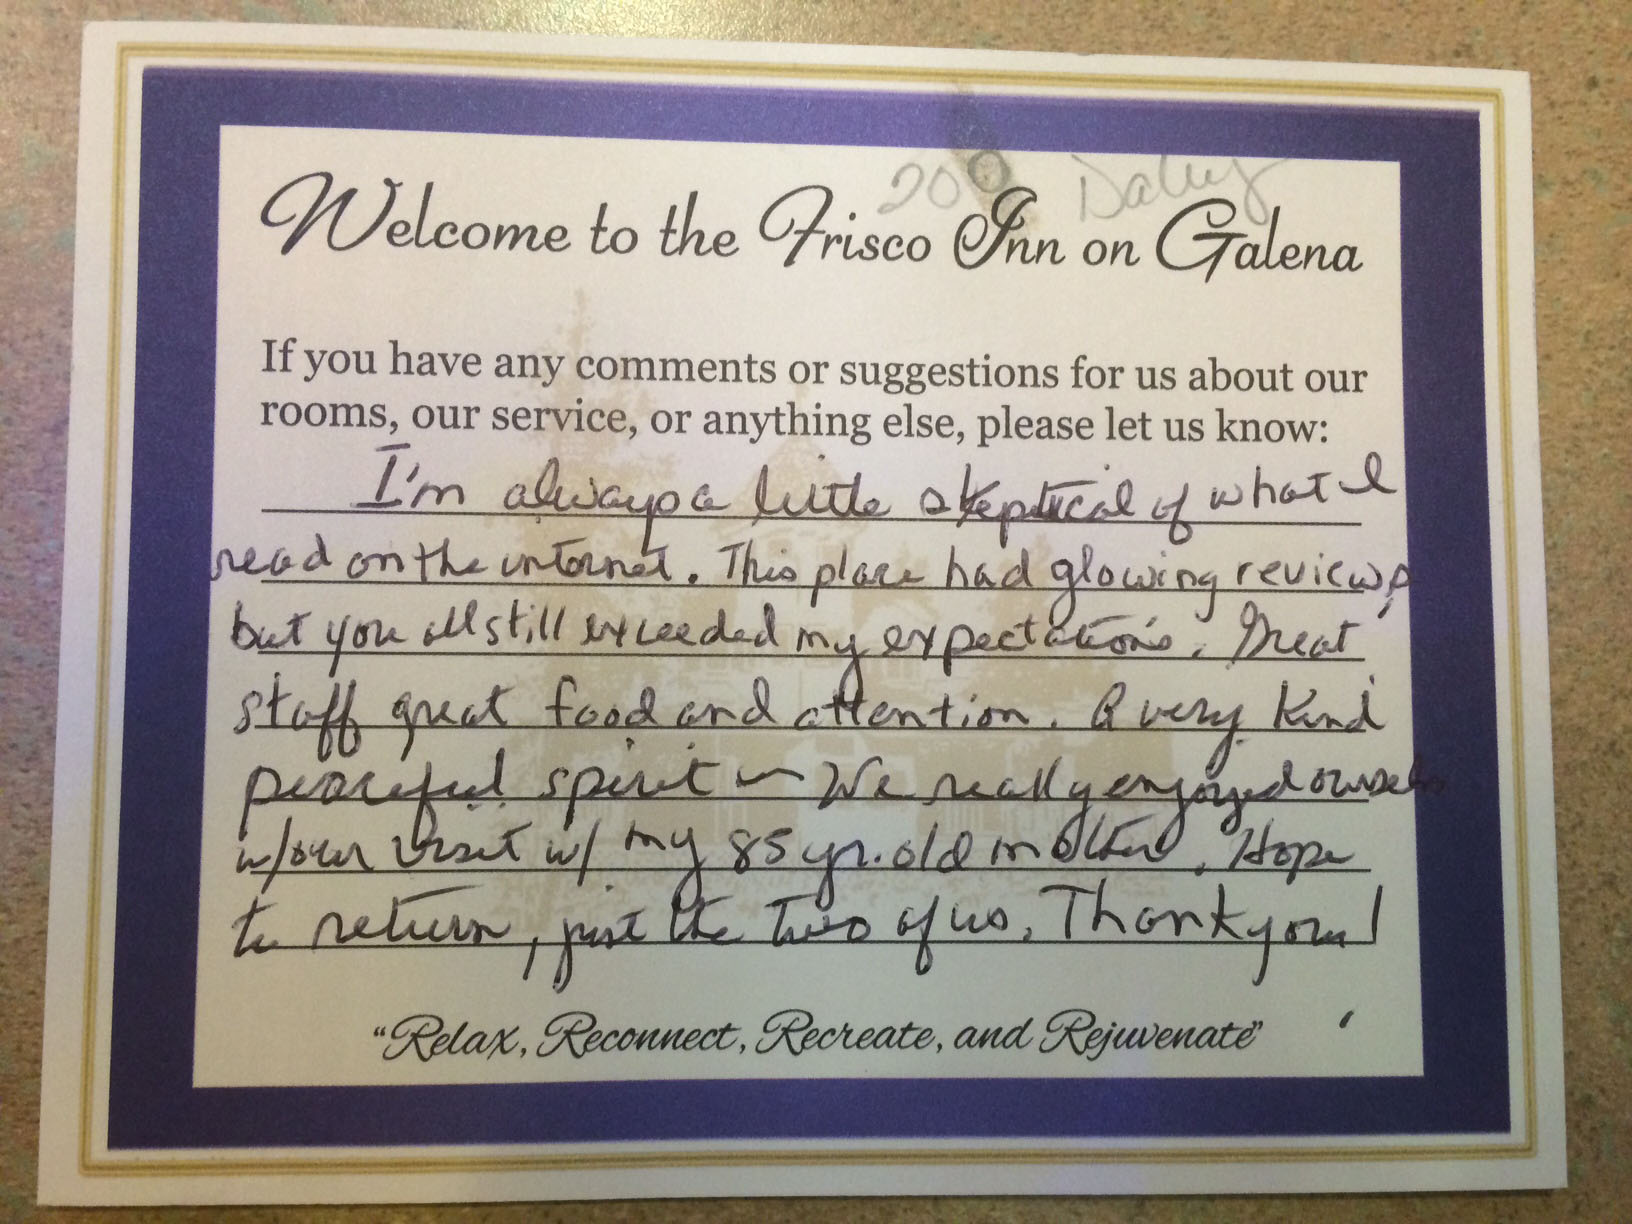 200
Welcome to the Frisco Inn on Galena
If you have any comments or suggestions for us about our
rooms, our service, or anything else, please let us know:
I'm always a little skeptical of what I
read on the internet. This place had glowing reviews,
but you all still exceeded my expectations. Great
staff great food and attention. A very kind
peaceful spirit ~ We really enjoyed ourselves
w/our visit w/ my 85 yr. old mother. Hope
to return, just the two of us. Thank you!
"Relax, Reconnect, Recreate, and Rejuvenate"